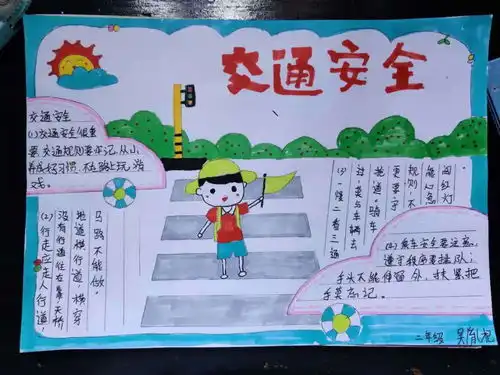 交通安全
交通安全
(1)交通安全很重
要,交通规则要牢记,从小
养成好习惯,不在路上玩游
戏。
(2)行走应走人行道,
没有行道往左靠,天桥
地道横行道,横穿
马路不能做。
(3)一慢二看三通
过,莫与车辆去
抢道。骑车
更要守
规则,不
能心急
闯红灯。
(4)乘车安全要注意,
遵守秩序要排队;
手头不能伸窗外,扶紧把
手莫忘记。
二年级 吴